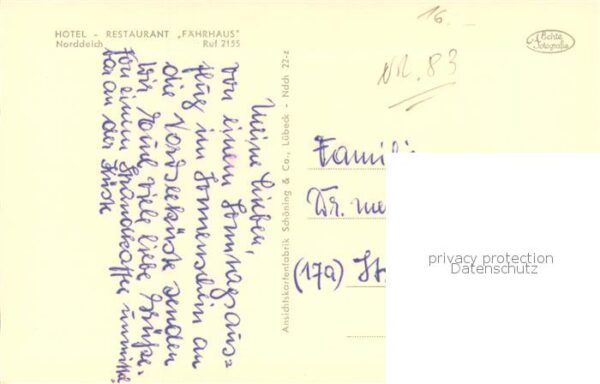 HOTEL - RESTAURANT „FÄHRHAUS"
Norddeich Ruf 2155
16.-
Echte Fotografie
NR. 83
Meine Lieben,
von einem Sonntagsaus=
flug im Sonnenschein an
die Nordseeküste senden
wir Euch viele liebe Grüße.
von einem Strandkaffee
bar an der Küste
Ansichtskartenfabrik Schöning & Co., Lübeck - Ndch 22-z
Familie
Dr. me
(17a) St.
privacy protection
Datenschutz